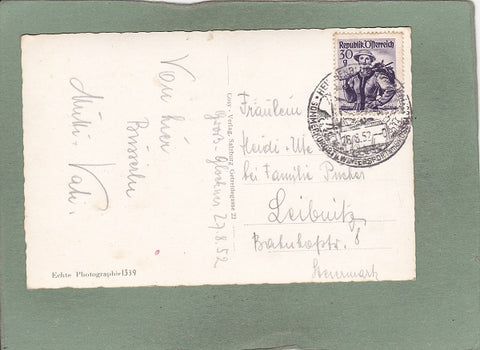 Von hier
Busserln
Mutti, Vati.
Echte Photographie 1339
Cosy-Verlag, Salzburg Getreidegasse 22
Groß-Glockner 27.8.52
Republik Österreich
30 g
26.8.52
Fräulein
Heidi-Ute
bei Familie Pucher
Leibnitz
Bahnhofstr. 8
Steiermark